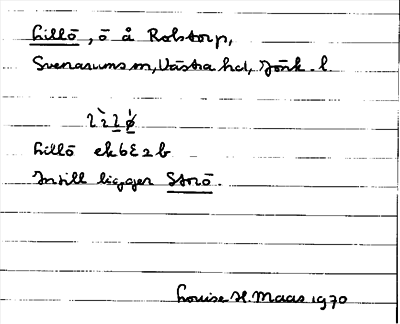 Lillö, ö å Rolstorp,
Svenarums sn, Västra hd, Jönk. l.
Lillö ek6E2b
Intill ligger Storö.
Louise H. Maas 1970